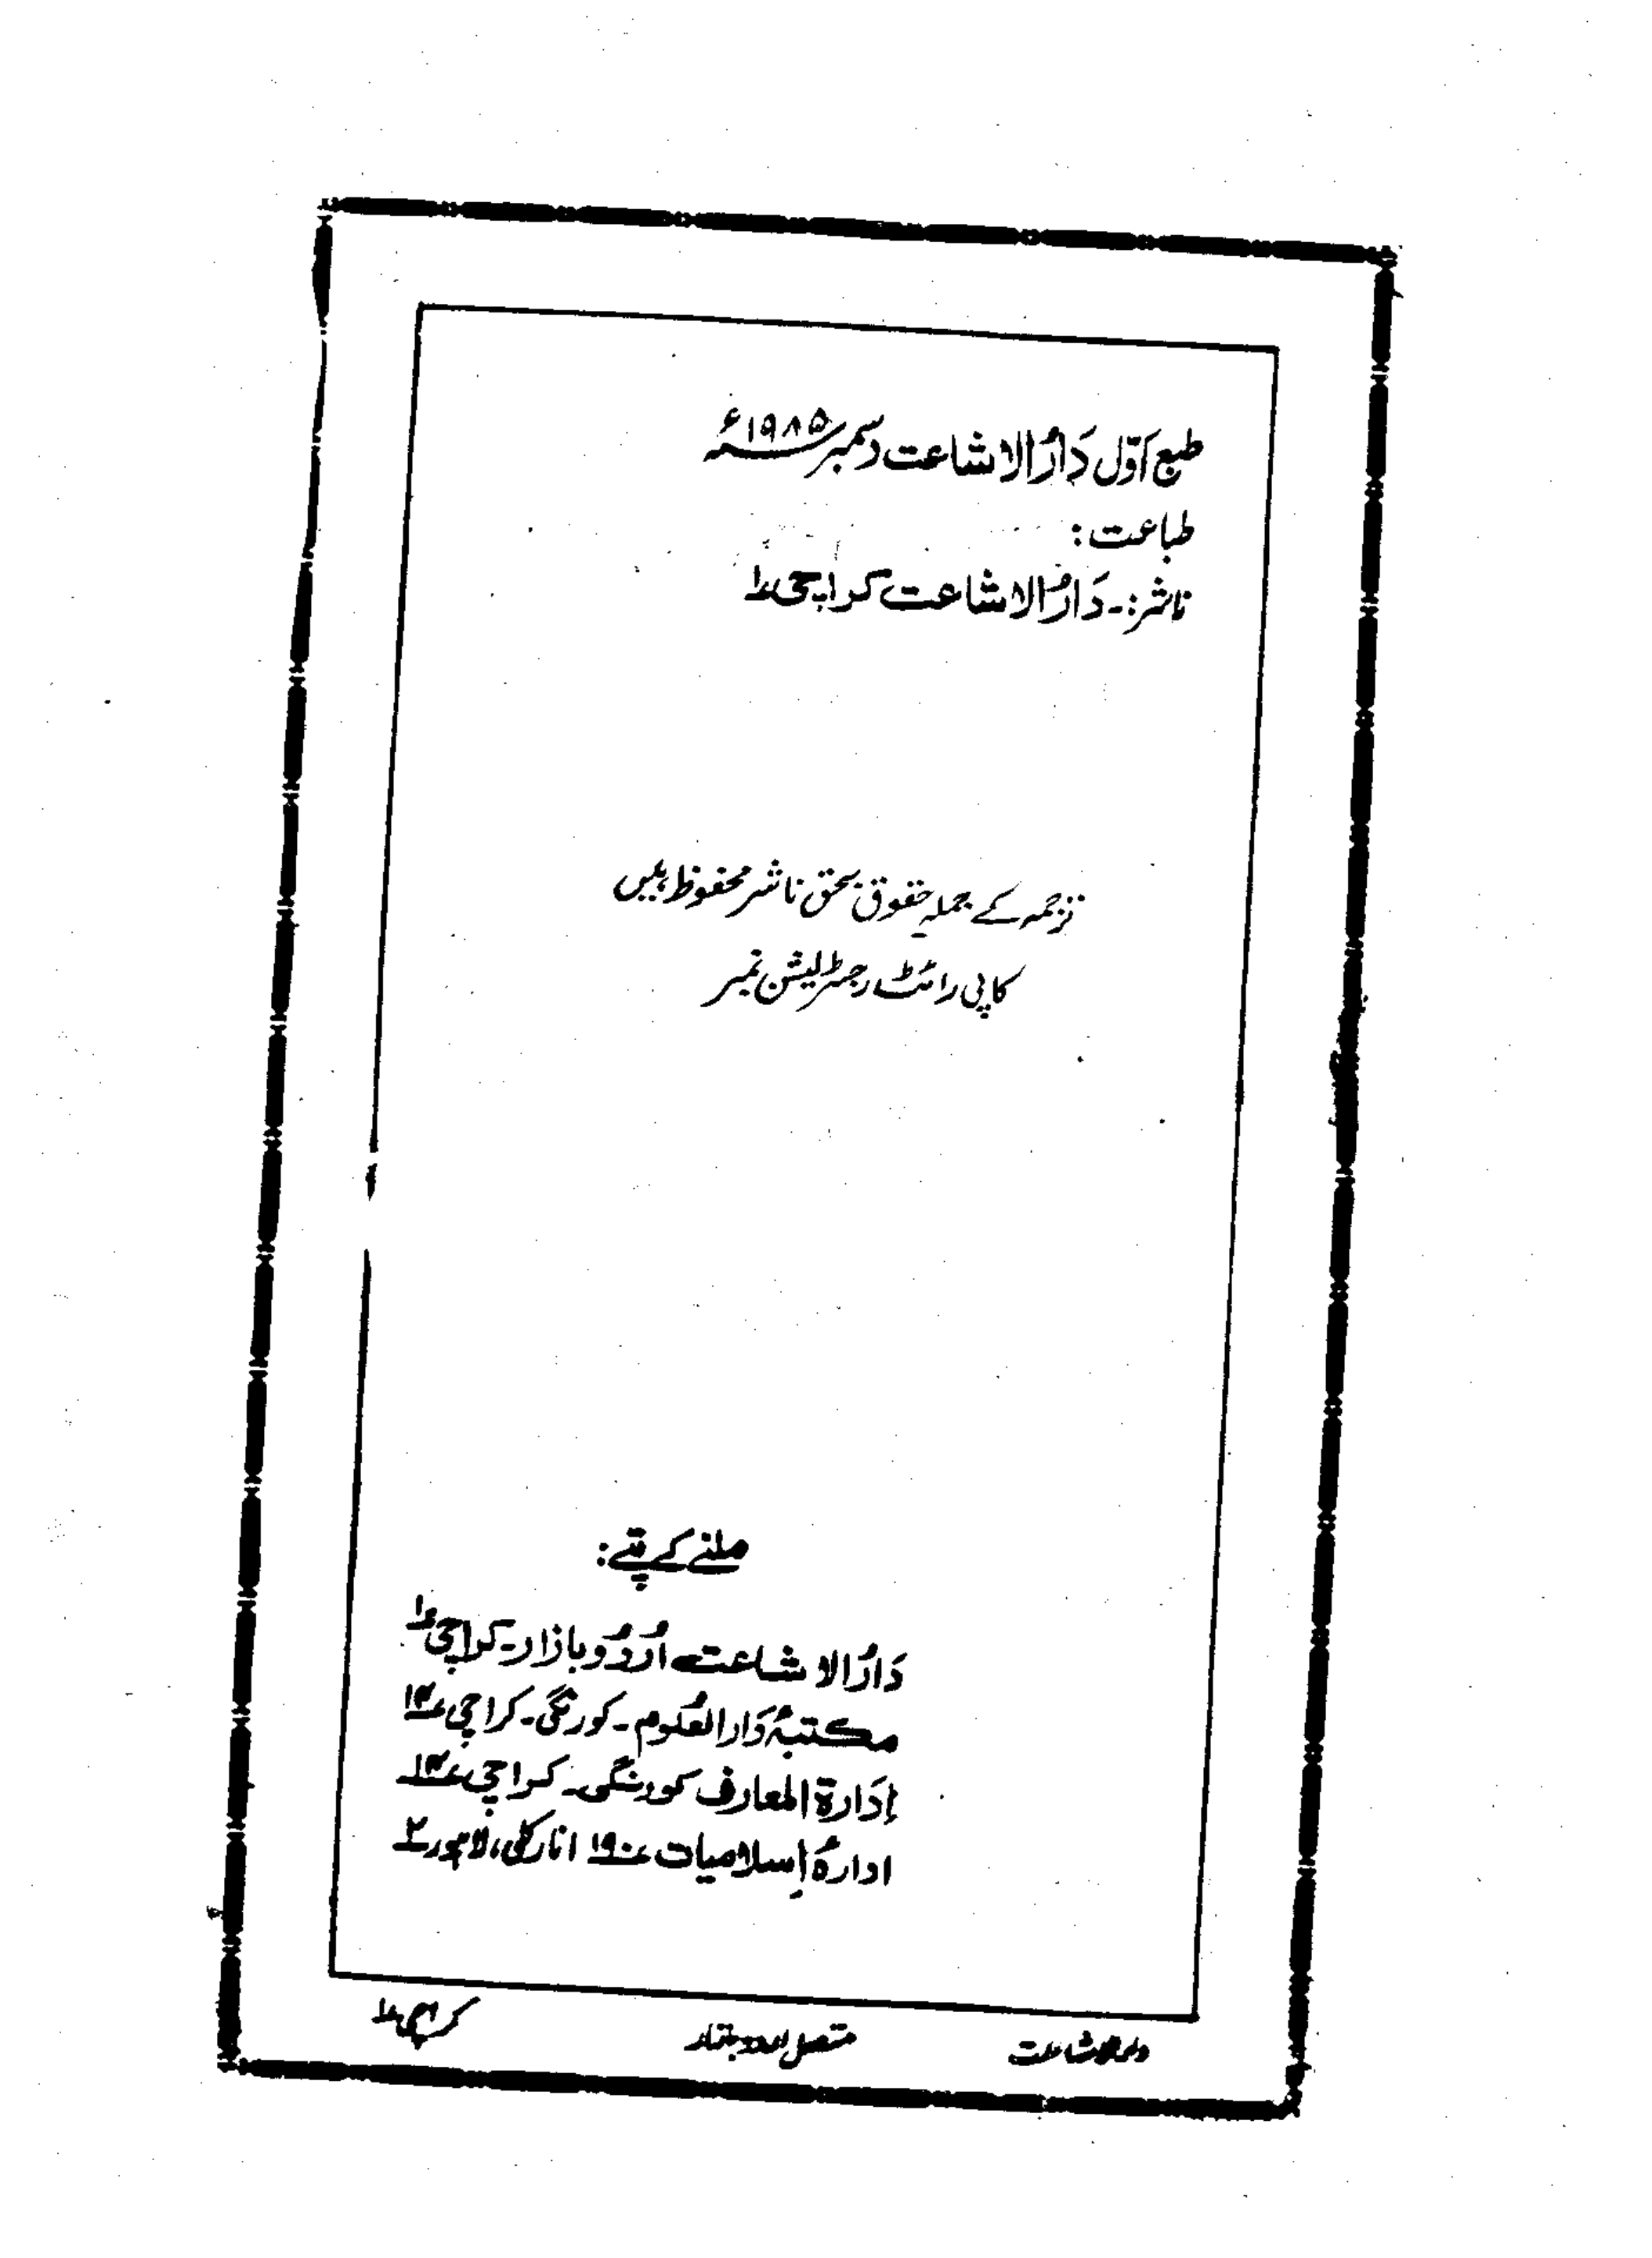 طبع اوّل دَارُالاشاعت دسمبر ۱۹۸۵ء
طباعت:
ناشر:۔ دَارُالاشاعت کراچی ۱
ترجمہ کے جملہ حقوق بحق ناشر محفوظ ہیں
کاپی رائٹ رجسٹریشن نمبر
ملنے کے پتے:
دَارُالاشاعت اُردُو بازار۔ کراچی ۱
مکتبۂ دَارالعُلوم۔ کورنگی۔ کراچی ۱۴
إدَارۃ المعارف کورنگی۔ کراچی ۱۴
ادارۂ اِسلامیات ۱۹۰ انارکلی، لاہور ۲
دارالاشاعت متصل اردو بازار کراچی ۱